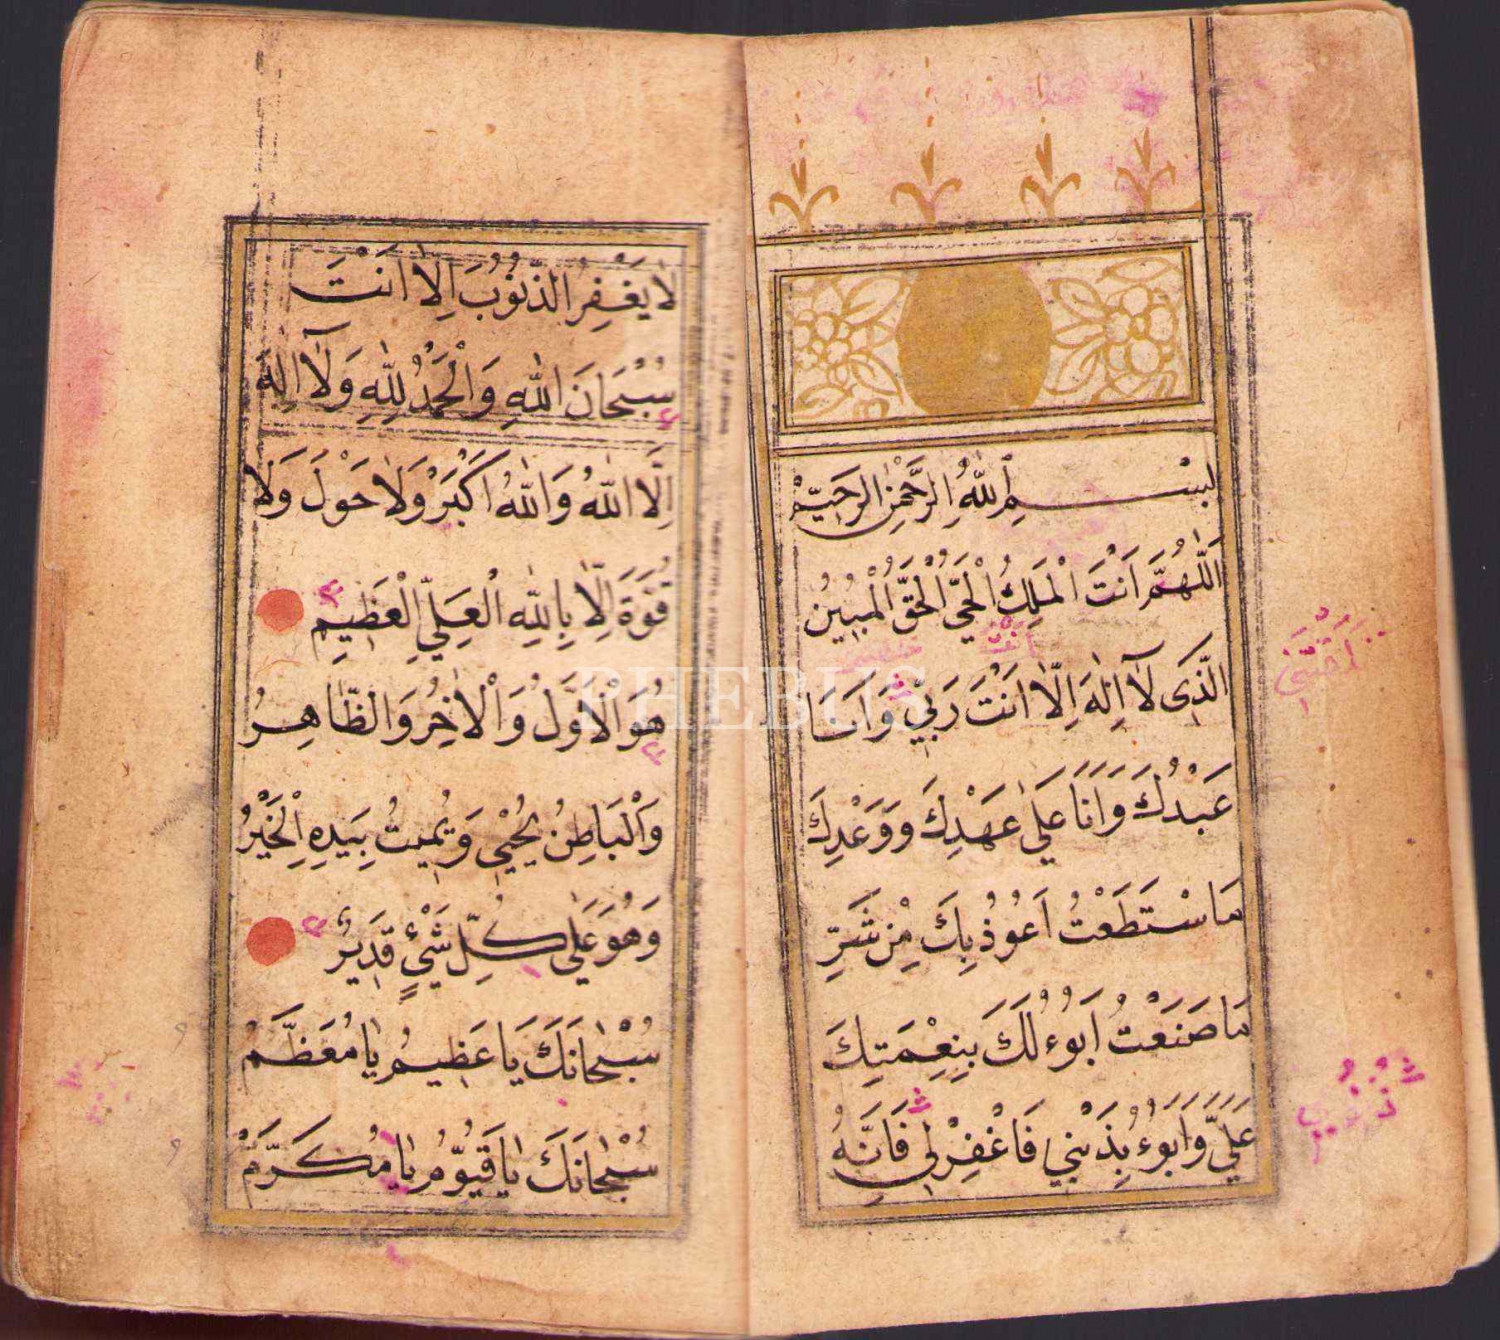 بِسْمِ اللّٰهِ الرَّحْمٰنِ الرَّحِيمْ
اَللّٰهُمَّ اَنْتَ الْمَلِكُ الْحَيُّ الْحَقُّ الْمُبِينُ
الَّذِى لَآ اِلٰهَ اِلَّا اَنْتَ رَبِّي وَاَنَا
عَبْدُكَ وَاَنَا عَلٰى عَهْدِكَ وَوَعْدِكَ
مَاسْتَطَعْتُ اَعُوذُبِكَ مِنْ شَرِّ
مَاصَنَعْتُ اَبُوءُ لَكَ بِنِعْمَتِكَ
عَلَيَّ وَاَبُوءُ بِذَنْبِي فَاغْفِرْلِي فَاِنَّهُ
لَا يَغْفِرُ الذُّنُوبَ اِلَّا اَنْتَ
سُبْحَانَ اللّٰهِ وَالْحَمْدُ لِلّٰهِ وَلَآ اِلٰهَ
اِلَّا اللّٰهُ وَاللّٰهُ اَكْبَرُ وَلَا حَوْلَ وَلَا
قُوَّةَ اِلَّا بِاللّٰهِ الْعَلِيِّ الْعَظِيمِ
هُوَ الْاَوَّلُ وَالْاٰخِرُ وَالظَّاهِرُ
وَالْبَاطِنُ يُحْيِي وَيُمِيتُ بِيَدِهِ الْخَيْرُ
وَهُوَ عَلٰي كُلِّ شَيْءٍ قَدِيرٌ
سُبْحَانَكَ يَا عَظِيمُ يَا مُعَظَّمُ
سُبْحَانَكَ يَا قَيُّومُ يَا مُكَرَّمُ
PHEBUS